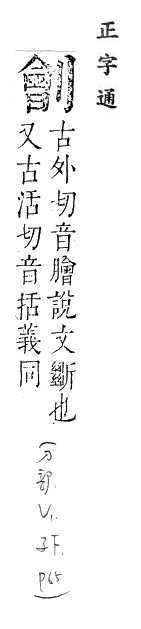 正字通
劊
古外切音膾說文斷也
又古活切音括義同
(刀部.V1.子下.P65)